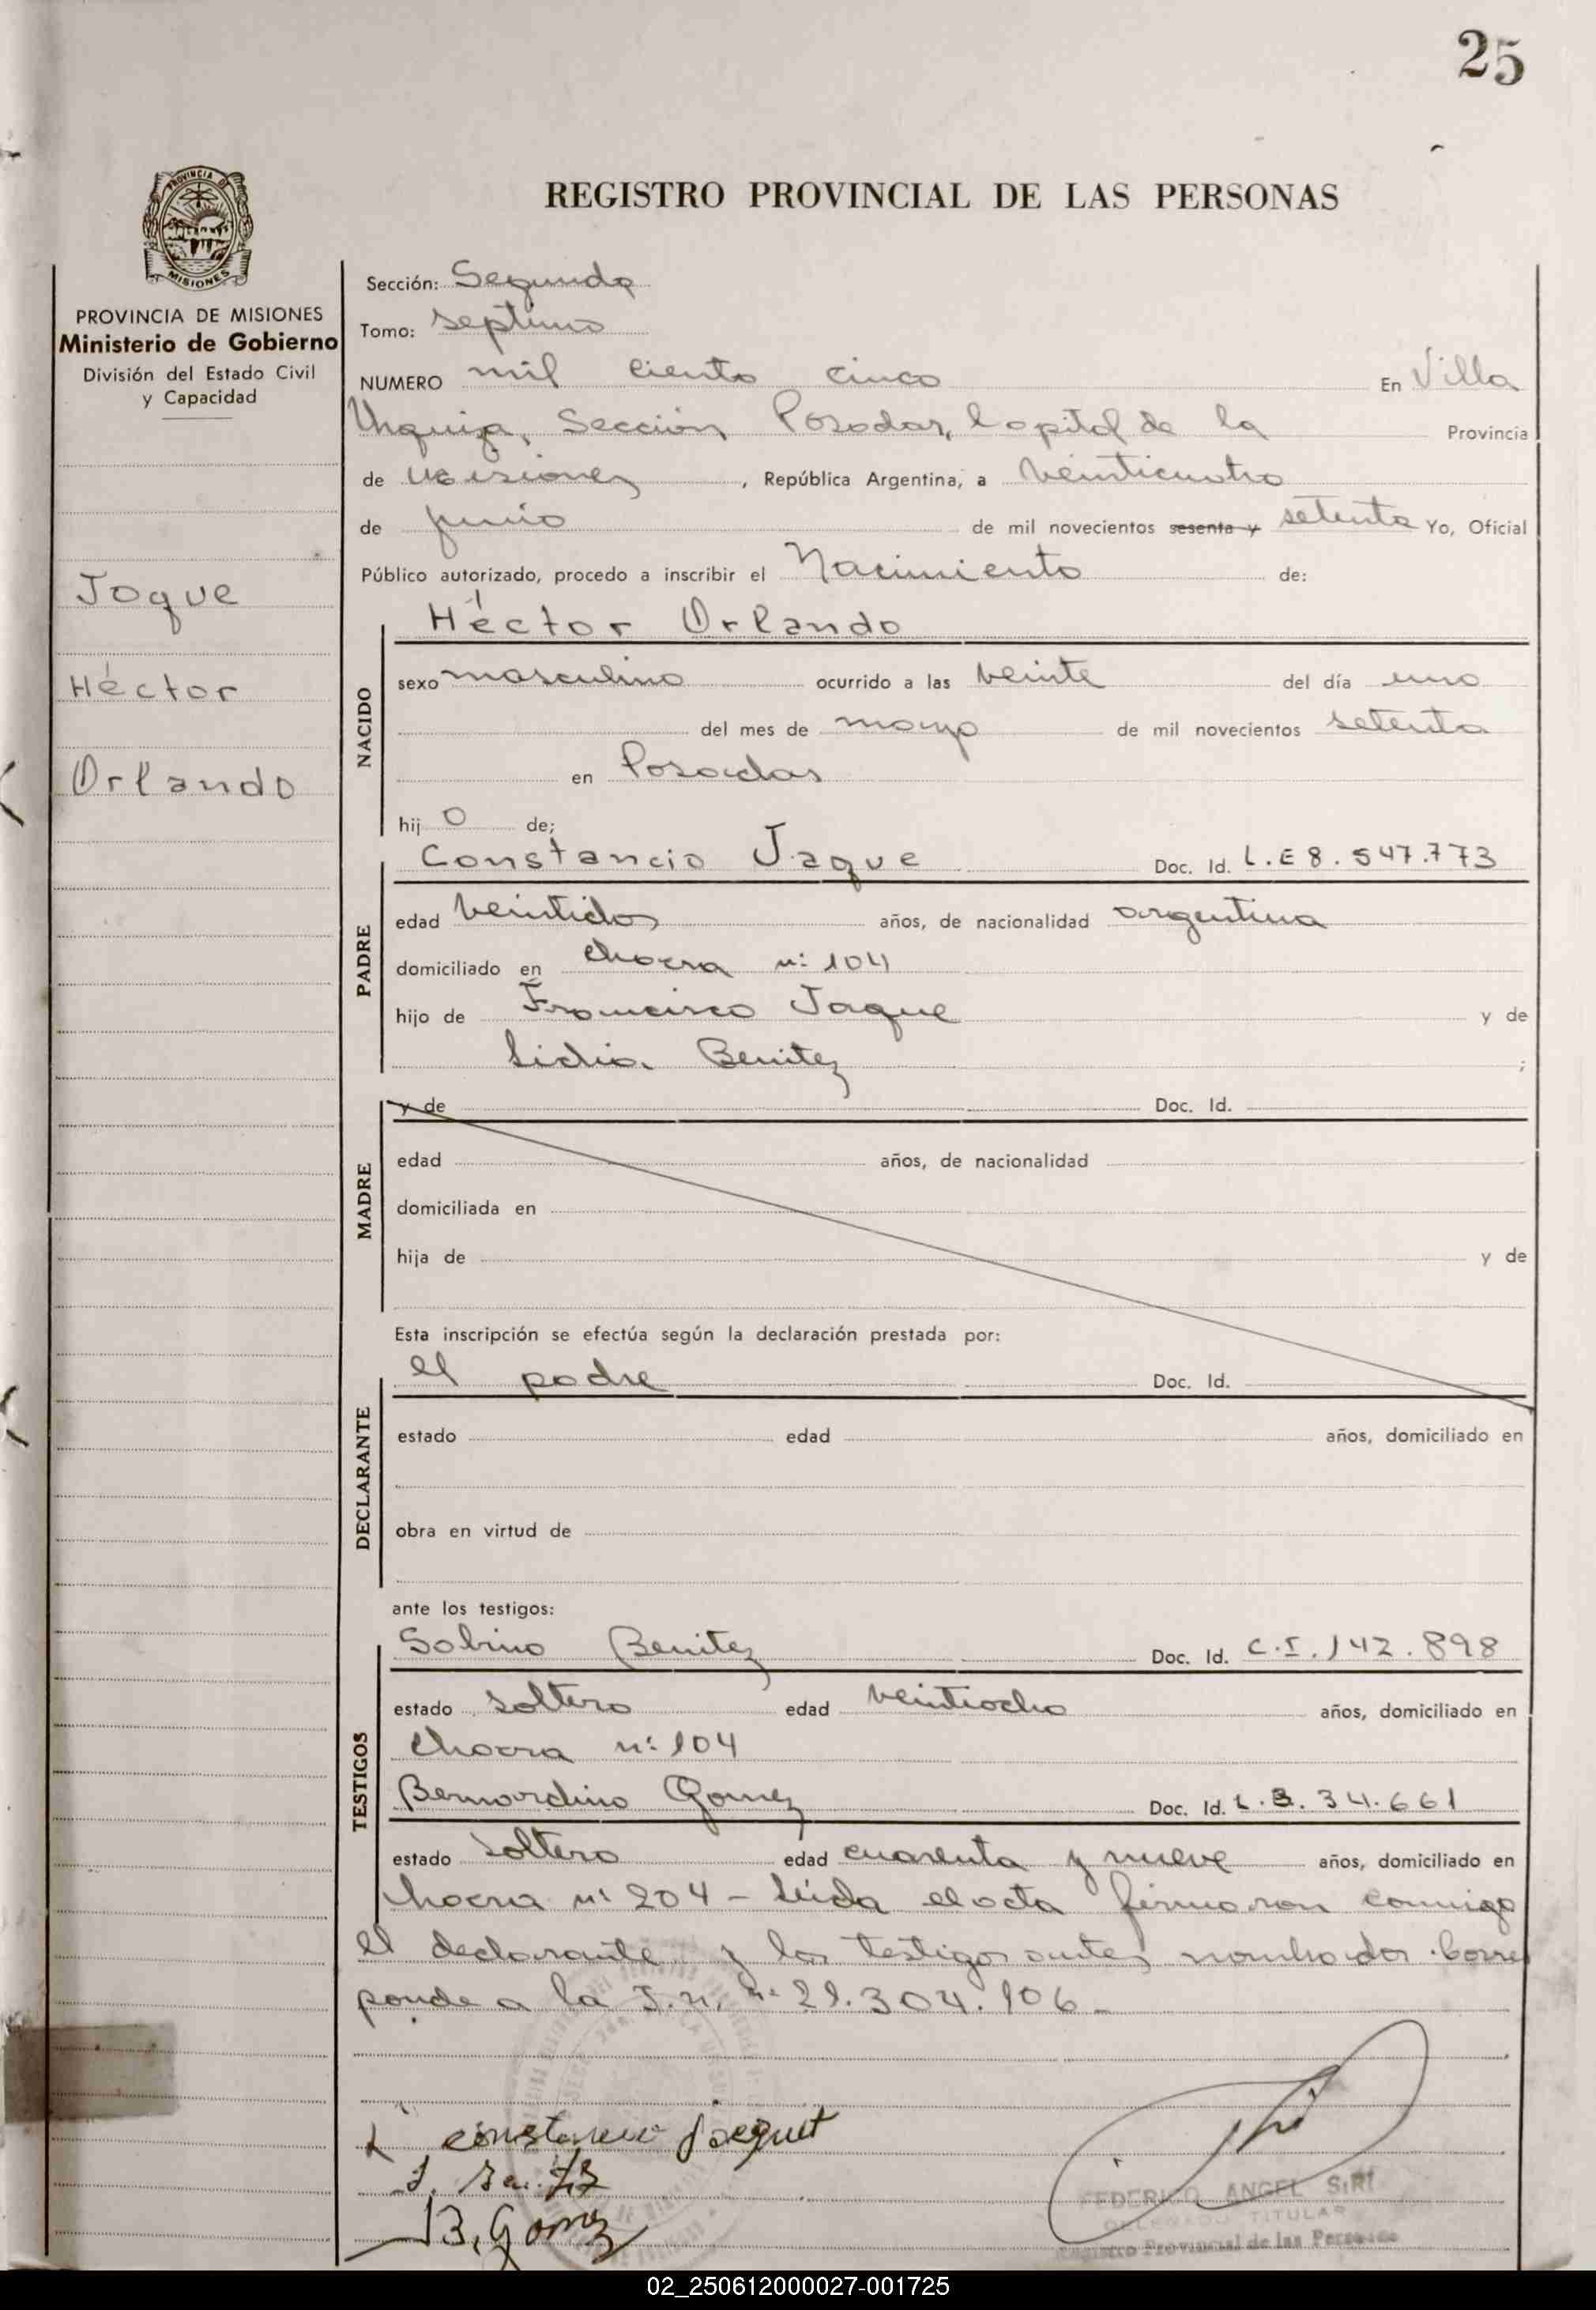 25
PROVINCIA DE
MISIONES
REGISTRO PROVINCIAL DE LAS PERSONAS
PROVINCIA DE MISIONES
Ministerio de Gobierno
División del Estado Civil
y Capacidad
Jaque
Héctor
Orlando
Sección: Segunda
Tomo: septimo
NUMERO mil ciento cinco En Villa
Urquiza, Sección Posadas, Capital de la Provincia
de Misiones, República Argentina, a veinticuatro
de junio de mil novecientos sesenta y setenta Yo, Oficial
Público autorizado, procedo a inscribir el Nacimiento de:
NACIDO
Héctor Orlando
sexo masculino ocurrido a las veinte del día uno
del mes de mayo de mil novecientos setenta
en Posadas
hij o de;
PADRE
Constancio Jaque Doc. Id. L.E 8.547.773
edad veintidos años, de nacionalidad argentina
domiciliado en chacra n: 104
hijo de Francisco Jaque y de
Lidia Benitez ;
MADRE
y de Doc. Id.
edad años, de nacionalidad
domiciliada en
hija de y de
Esta inscripción se efectúa según la declaración prestada por:
DECLARANTE
el padre Doc. Id.
estado edad años, domiciliado en
obra en virtud de
ante los testigos:
TESTIGOS
Sabino Benitez Doc. Id. C.I. 142.898
estado soltero edad veintiocho años, domiciliado en
chacra n: 104
Bernardino Gomez Doc. Id. L.B. 34.661
estado soltero edad cuarenta y nueve años, domiciliado en
chacra n: 204 - Leida el acta firmaron conmigo
el declarante y los testigos antes nombrados. Corres
ponde a la I.n. n: 21.304.106 -
constancio jaquet
B. Gomez
FEDERICO ANGEL SIRI
DELEGADO TITULAR
Registro Provincial de las Personas
02_250612000027-001725